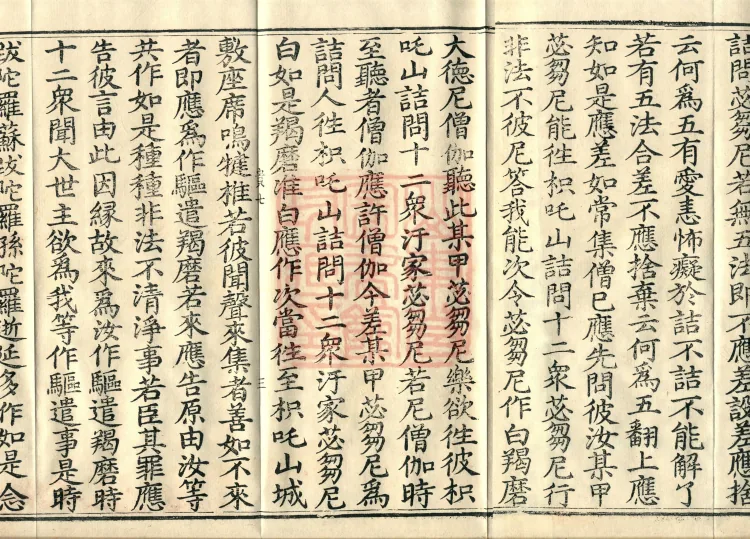 詰問苾芻尼若無五法即不應差設差應捨
云何為五有愛恚怖癡於詰不詰不能解了
若有五法合差不應捨棄云何為五翻上應
知如是應差如常集僧已應先問彼汝某甲
苾芻尼能往枳吒山詰問十二衆苾芻尼行
非法不彼尼答我能次令苾芻尼作白羯磨
大德尼僧伽聽此某甲苾芻尼樂欲往彼枳
吒山詰問十二衆汙家苾芻尼若尼僧伽時
至聽者僧伽應許僧伽今差某甲苾芻尼為
詰問人往枳吒山詰問十二衆汙家苾芻尼
白如是羯磨准白應作次當往至枳吒山城
敷座席鳴犍椎若彼聞聲來集者善如不來
者即應為作驅遣羯磨若來應告原由汝等
共作如是種種非法不清淨事若臣其罪應
告彼言由此因緣故來為汝作驅遣羯磨時
十二衆聞大世主欲為我等作驅遣事是時
跋陀羅蘇跋陀羅孫陀羅逝延多作如是念